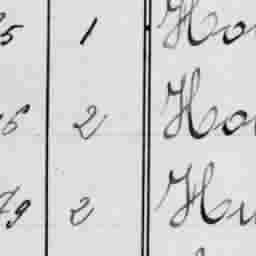 5 1 Ho
6 2 Ho
79 2 Hu